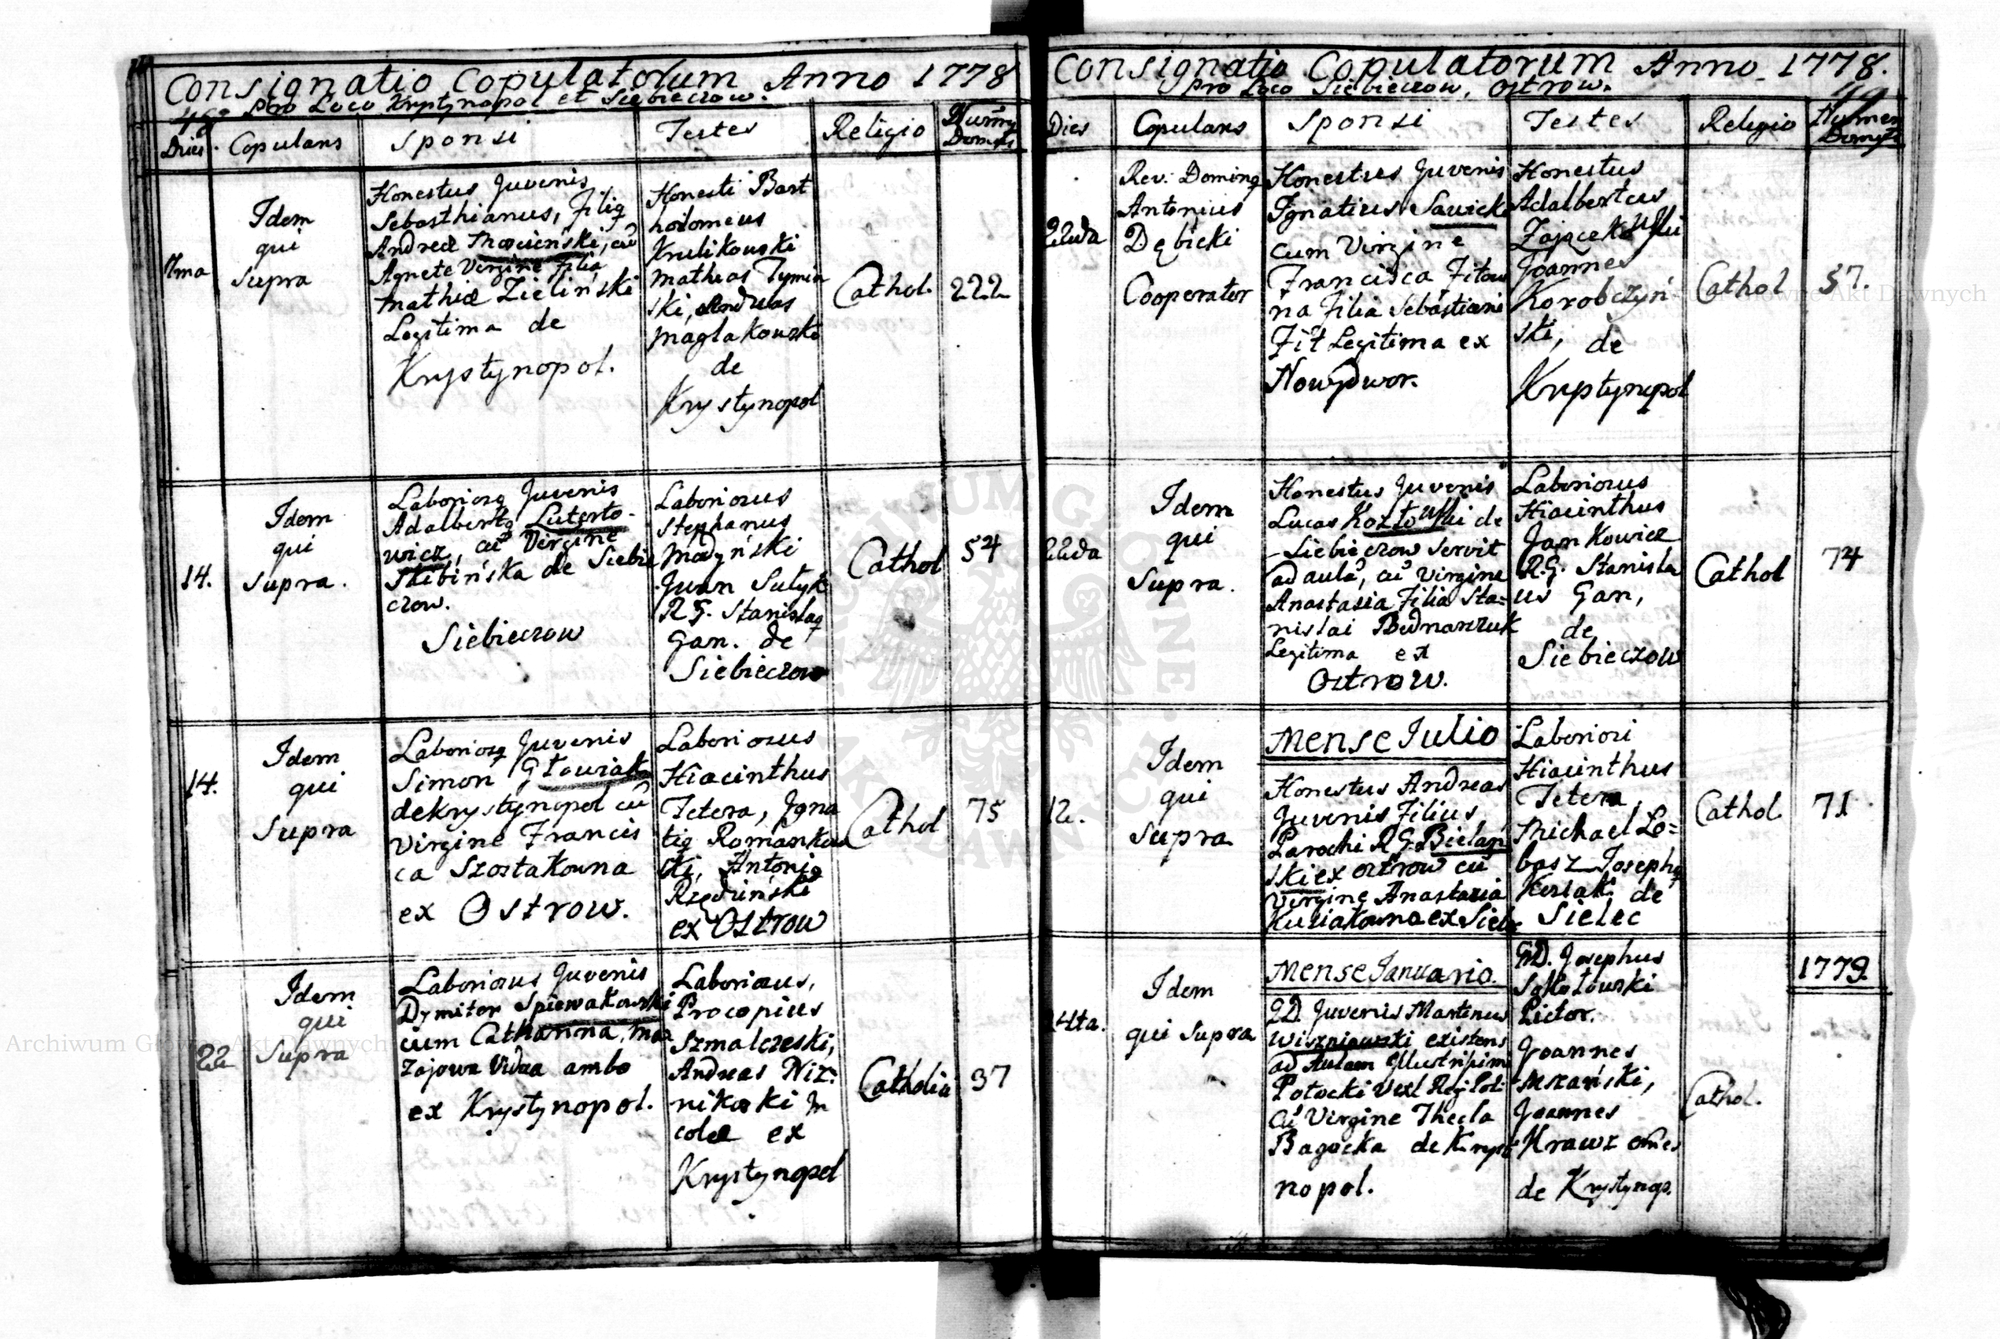 Consignatio Copulatorum Anno 1778
Pro Loco Krystynopol et Siebieczow.
48
Dies. Copulans Sponsi Testes Religio Numerus Domus
7ma
Idem
qui
Supra
Honestus Juvenis
Sebasthianus, Filiq
Andreæ cū
Agnete Virgine Filia
Mathiæ Zieliński
Legitima de
Krystynopol.
Honesti Bart
holomeus
Krulikowski
Mathias Tymin
ski, Andreas
Maglakowski
de
Krystynopol
Cathol.
222
14.
Idem
qui
Supra.
Laboriosq Juvenis
Adalbertq Luterto-
wicz, cū Virgine
Skibińska de Siebie
czow.
Siebieczow
Laboriosus
Stephanus
Madyński
Juan Sutyk
R.G. Stanislaq
Gan. de
Siebieczow
Cathol
54
14.
Idem
qui
Supra
Laboriosq Juvenis
Simon Głowiak
de Krystynopol cū
Virgine Francis
ca Szostakowna
ex Ostrow.
Laboriosus
Hiacinthus
Tetera, Igna
tiq Romankow
ski, Antoniq
Rzędziński
ex Ostrow
Cathol
75
22
Idem
qui
Supra
Laboriosus Juvenis
Dymiter Spiewakowski
cum Catharina, Ma
zajowa Vidua ambo
ex Krystynopol.
Laboriosus,
Procopius
Szmalczeski,
Andreas Niz:
nikoski In
colæ ex
Krystynopol
Catholia
37
Consignatio Copulatorum Anno 1778.
Pro Loco Siebieczow, Ostrow.
49
Dies Copulans Sponsi Testes Religio Numerus Domus
22da
Rev: Dominq
Antonius
Dębicki
Cooperator
Honestus Juvenis
Ignatius Sawicki
cum Virgine
Francisca Fitow
na Filia Sebastiani
Fit Legitima ex
Nowydwor.
Honestus
Adalbertus
Zajączkowski
Joannes
Korobczyń
ski,
de
Krystynopol
Cathol
57.
22da
Idem
qui
Supra.
Honestus Juvenis
Lucas Kozłowski de
Siebieczow Servit
ad aulā, cū Virgine
Anastasia Filia Sta=
nislai Bednarzuk
Legitima ex
Ostrow.
Laboriosus
Hiacinthus
Jankowicz
R.G. Stanisla
us Gan,
de
Siebieczow
Cathol
74
12.
Idem
qui
Supra
Mense Iulio
Honestus Andreas
Juvenis Filius
Parochi R.G. Bielań
ski ex Ostrow cū
Virgine Anastasia
Kuziakowna ex Siele
Laboriosi
Hiacinthus
Tetera
Michael Lo=
basz Josephq
Kuziak de
Sielec
Cathol
71
14ta.
Idem
qui Supra
1779
Mense Ianuario.
GD. Juvenis Martinus
Wiszniowski existens
ad Aulam Illustrissimi
Potocki
cū Virgine Thecla
Bagocka de Krysty
nopol.
GD. Josephus
Sokołowski
Pictor.
Joannes
Joannes
Krawz
de Krystynop.
Cathol.
Archiwum Główne Akt Dawnych
Archiwum Główne Akt Dawnych
ARCHIWUM GŁÓWNE AKT DAWNYCH